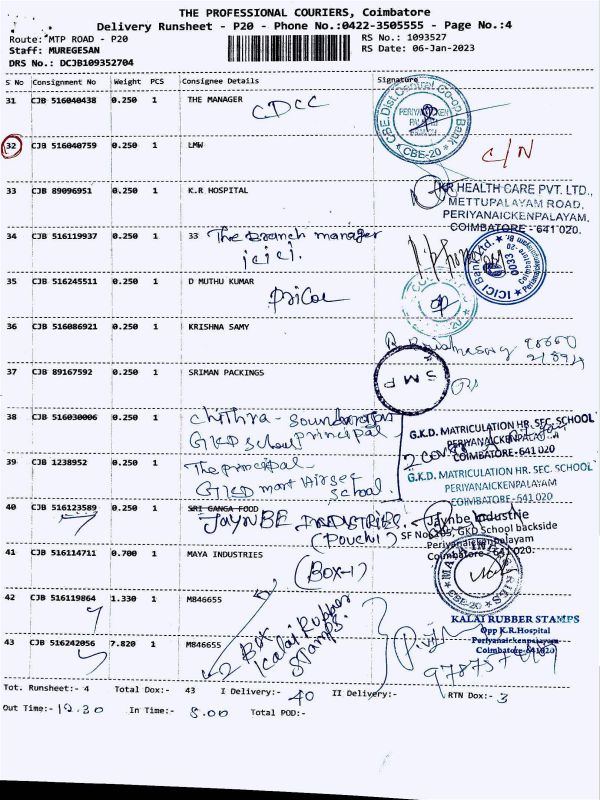 THE PROFESSIONAL COURIERS, Coimbatore
Delivery Runsheet - P20 - Phone No.:0422-3505555 - Page No.:4
Route: MTP ROAD - P20
RS No.: 1093527
Staff: MUREGESAN
RS Date: 06-Jan-2023
DRS No.: DCJB109352704
S No Consignment No Weight PCS Consignee Details Signature
31 CJB 516040438 0.250 1 THE MANAGER CDCC
CBE.Dist Central Co-op. Bank
CBE-20
32 CJB 516040759 0.250 1 LMW C/N
33 CJB 89096951 0.250 1 K.R HOSPITAL
KR HEALTH CARE PVT. LTD.,
METTUPALAYAM ROAD,
PERIYANAICKENPALAYAM,
COIMBATORE - 641 020.
34 CJB 516119937 0.250 1 33 The Branch manager
icici.
ICICI Bank Ltd.
0033
35 CJB 516245511 0.250 1 D MUTHU KUMAR
Pricol
36 CJB 516086921 0.250 1 KRISHNA SAMY
37 CJB 89167592 0.250 1 SRIMAN PACKINGS
SMP
38 CJB 516030006 0.250 1 Chithra -
GKD School principal
G.K.D. MATRICULATION HR. SEC. SCHOOL
PERIYANAICKENPALAYAM
COIMBATORE-641 020
2 covers
39 CJB 1238952 0.250 1 The principal
GKD mat Hr sec
School.
G.K.D. MATRICULATION HR. SEC. SCHOOL
PERIYANAICKENPALAYAM
COIMBATORE-641 020
40 CJB 516123589 0.250 1 SRI GANGA FOOD
JAYNBE INDUSTRIES.
(Pouch)
Jaynbe Industrie
SF No. 105, GKD School backside
Periyanaickenpalayam
Coimbatore - 641 020.
41 CJB 516114711 0.700 1 MAYA INDUSTRIES
(BOX-1)
MAYA INDUSTRIES
CBE-20
42 CJB 516119864 1.330 1 M846655
2 Box
Kalai Rubber
Stamps.
KALAI RUBBER STAMPS
Opp K.R.Hospital
Periyanaickenpalayam
Coimbatore-641020
43 CJB 516242056 7.820 1 M846655
Tot. Runsheet:- 4 Total Dox:- 43 I Delivery:- 40 II Delivery:- RTN Dox:- 3
Out Time:- 12.30 In Time:- 5.00 Total POD:-